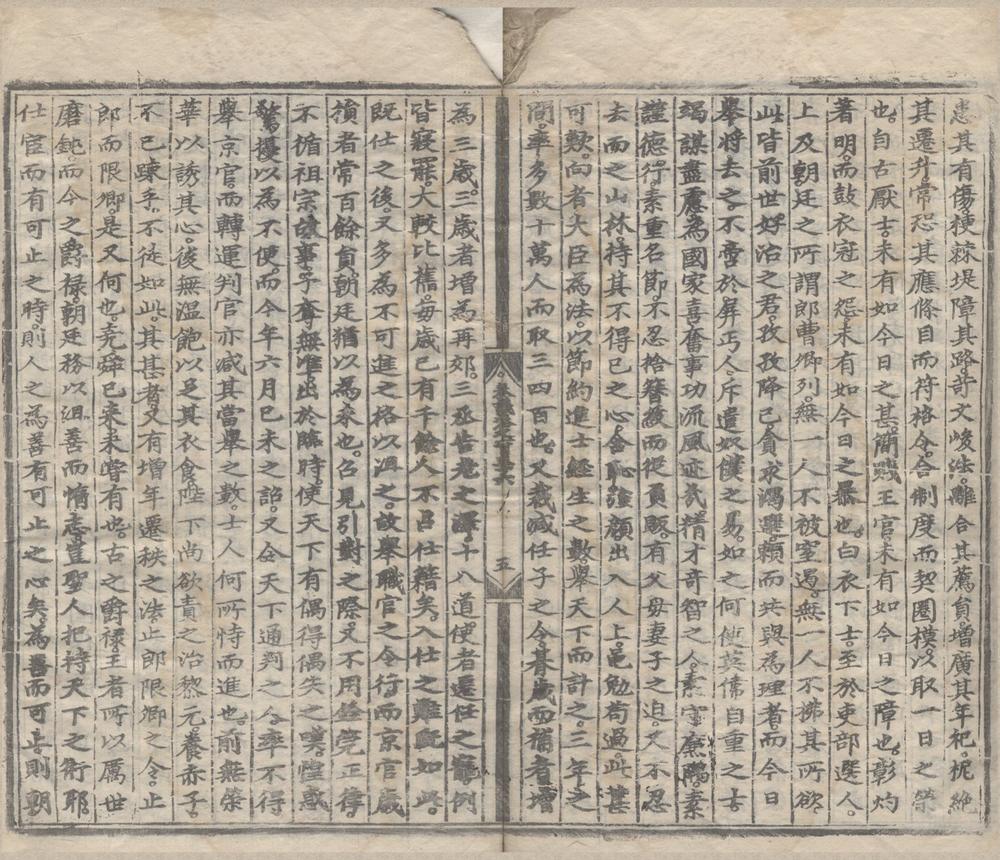 患其有傷梗棘堤障其路苛文峻法離合其薦員增廣其年祀扼絶
其遷升常恐其應條目而符格令合制度而契圈模以取一日之榮
也自古厭士未有如今日之甚簡賤王官未有如今日之障也彰灼
著明而鼓衣冠之怨未有如今日之暴也白衣下士至於吏部選人
上及朝廷之所謂郎曹卿列無一人不被窒遏無一人不拂其所欲
此皆前世好治之君孜孜降已貪求渴聚賴而共與爲理者而今日
舉將去之不啻於屏丐人斥遣奴僕之易如之何使英儒自重之士
竭謀盡慮爲國家喜奮事功流風迹哉精才奇智之人素守廉隅素
謹德行素重名節不忍捨簪紱而從負販有父母妻子之迫又不忍
去而之山林持其不得已之心含恥強顔出入人上黽勉苟過此甚
可歎向者大臣爲法以節約進士經生之數舉天下而計之三年之
間率多數十萬人而取三四百也又裁減任子之令朞歲而補者增
卷第六十六
五
爲三歲三歲者增爲再郊三丞告老之澤十八道使者還任之寵例
皆寢罷大較比舊每歲已有千餘人不占仕籍矣入仕之難旣如此
既仕之後又多爲不可進之格以沮之故舉職官之令行而京官歲
損者常百餘員朝廷猶以爲未也召見引對之際又不用銓筦正律
不循祖宗故事予奪無準出於臨時使天下有偶得偶失之嘆惶惑
驚擾以爲不便而今年六月已未之詔又令天下通判之人率不得
舉京官而轉運判官亦減其當舉之數士人何所恃而進也前無榮
華以誘其心後無溫飽以足其衣食陛下尚欲責之治黎元養赤子
不已踈乎不徒如此其甚者又有增年遷秩之法止郎限卿之令止
郎而限卿是又何也堯舜已來未嘗有也古之爵祿王者所以厲世
磨鈍而今之爵祿朝廷務以沮善而惰志豈聖人把持天下之術耶
仕宦而有可止之時則人之爲善有可止之心矣爲善而可止則朝